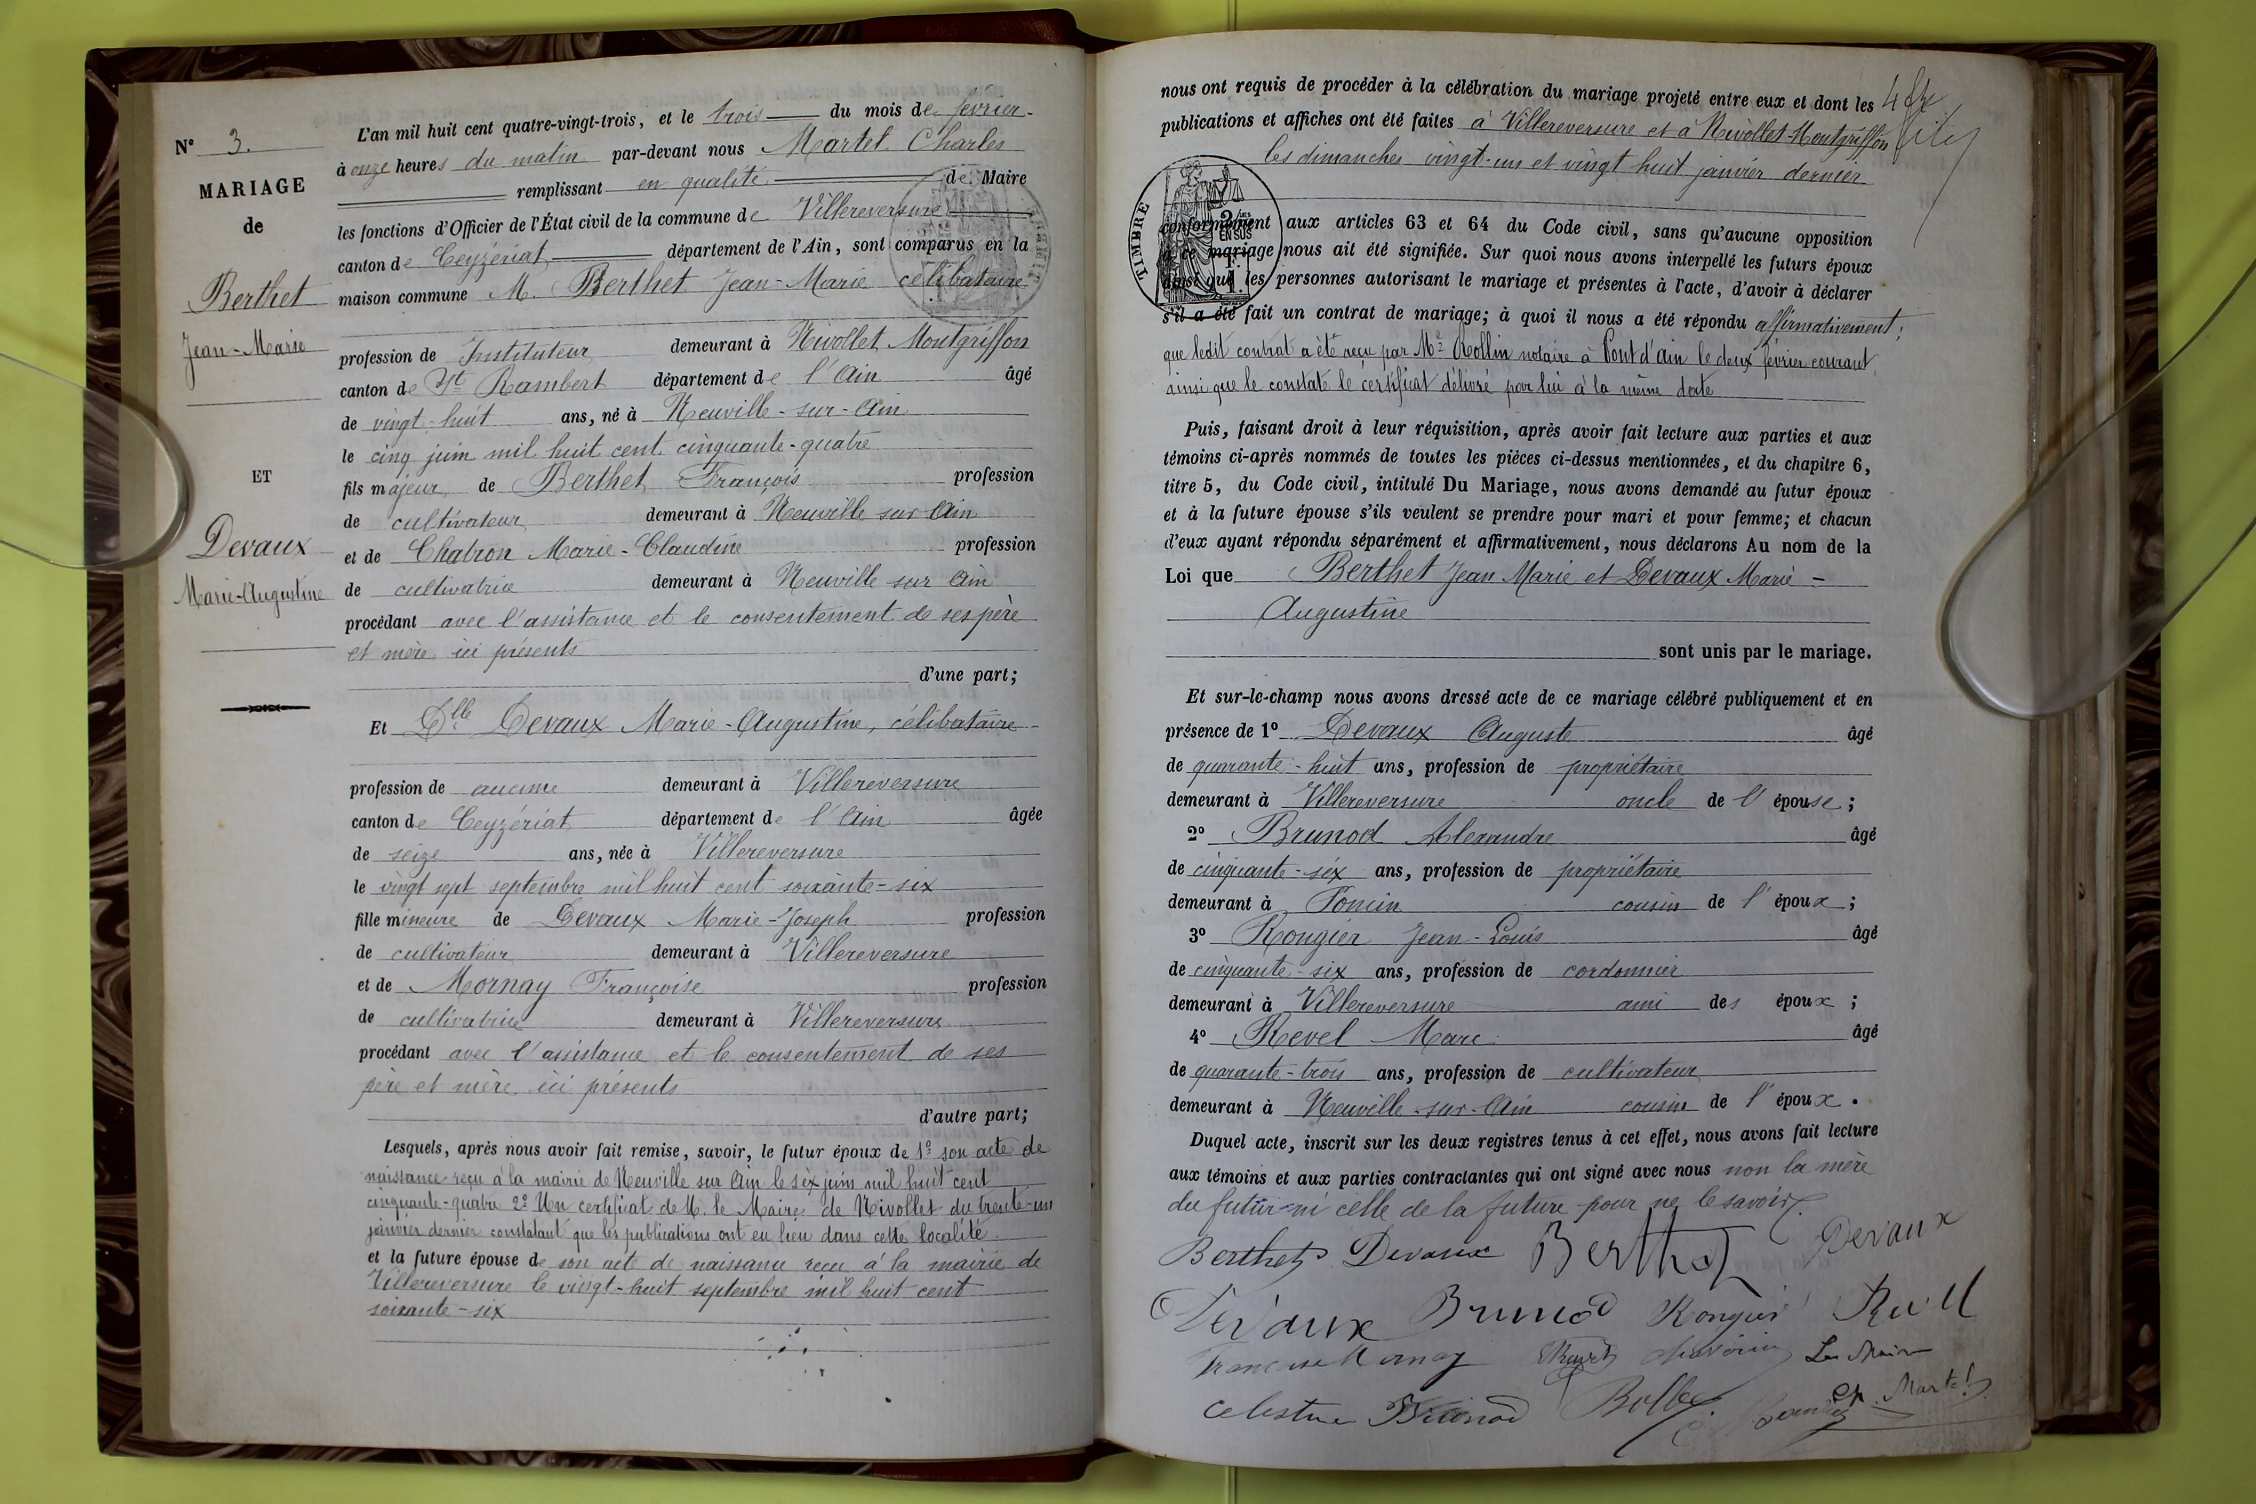 N° 3.
MARIAGE
de
Berthet
Jean-Marie
ET
Devaux
Marie-Augustine
L'an mil huit cent quatre-vingt-trois, et le trois du mois de février
à onze heures du matin par-devant nous Martel Charles
remplissant en qualité de Maire
les fonctions d'Officier de l'État civil de la commune de Villereversure
canton de Ceyzériat département de l'Ain, sont comparus en la
maison commune M. Berthet Jean-Marie célibataire
profession de Instituteur demeurant à Nivollet Montgriffon
canton de St Rambert département de l'Ain âgé
de vingt-huit ans, né à Neuville-sur-Ain
le cinq juin mil huit cent cinquante-quatre
fils majeur de Berthet François profession
de cultivateur demeurant à Neuville sur Ain
et de Chatron Marie-Claudine profession
de cultivatrice demeurant à Neuville sur Ain
procédant avec l'assistance et le consentement de ses père
et mère ici présents
d'une part;
Et Dlle Devaux Marie-Augustine, célibataire
profession de aucune demeurant à Villereversure
canton de Ceyzériat département de l'Ain âgée
de seize ans, née à Villereversure
le vingt sept septembre mil huit cent soixante-six
fille mineure de Devaux Marie-Joseph profession
de cultivateur demeurant à Villereversure
et de Mornay Françoise profession
de cultivatrice demeurant à Villereversure
procédant avec l'assistance et le consentement de ses
père et mère ici présents
d'autre part;
Lesquels, après nous avoir fait remise, savoir, le futur époux de 1° son acte de
naissance reçu à la mairie de Neuville sur Ain le six juin mil huit cent
cinquante-quatre 2° Un certificat de M. le Maire de Nivollet du trente-un
janvier dernier constatant que les publications ont eu lieu dans cette localité.
et la future épouse de son acte de naissance reçu à la mairie de
Villereversure le vingt-huit septembre mil huit cent
soixante-six
nous ont requis de procéder à la célébration du mariage projeté entre eux et dont les
publications et affiches ont été faites à Villereversure et à Nivollet-Montgriffon
les dimanches vingt-un et vingt huit janvier dernier
TIMBRE
2/10 EN SUS
conformément aux articles 63 et 64 du Code civil, sans qu'aucune opposition
à ce mariage nous ait été signifiée. Sur quoi nous avons interpellé les futurs époux
ainsi que les personnes autorisant le mariage et présentes à l'acte, d'avoir à déclarer
s'il a été fait un contrat de mariage; à quoi il nous a été répondu affirmativement;
que ledit contrat a été reçu par Me Rollin notaire à Pont d'Ain le deux février courant
ainsi que le constate le certificat délivré par lui à la même date
Puis, faisant droit à leur réquisition, après avoir fait lecture aux parties et aux
témoins ci-après nommés de toutes les pièces ci-dessus mentionnées, et du chapitre 6,
titre 5, du Code civil, intitulé Du Mariage, nous avons demandé au futur époux
et à la future épouse s'ils veulent se prendre pour mari et pour femme; et chacun
d'eux ayant répondu séparément et affirmativement, nous déclarons Au nom de la
Loi que Berthet Jean Marie et Devaux Marie -
Augustine
sont unis par le mariage.
Et sur-le-champ nous avons dressé acte de ce mariage célébré publiquement et en
présence de 1° Devaux Auguste âgé
de quarante-huit ans, profession de propriétaire
demeurant à Villereversure oncle de l'épouse;
2° Brunod Alexandre âgé
de cinquante-six ans, profession de propriétaire
demeurant à Poncin cousin de l'époux;
3° Rougier Jean-Louis âgé
de cinquante-six ans, profession de cordonnier
demeurant à Villereversure ami des époux;
4° Revel Marc âgé
de quarante-trois ans, profession de cultivateur
demeurant à Neuville-sur-Ain cousin de l'époux.
Duquel acte, inscrit sur les deux registres tenus à cet effet, nous avons fait lecture
aux témoins et aux parties contractantes qui ont signé avec nous non la mère
du futur ni celle de la future pour ne le savoir.
Berthet Devaux Berthet Devaux
Devaux Brunod Rougier Revel
Francise Mornay Le Maire
Celestine Brunod Ch. Martel